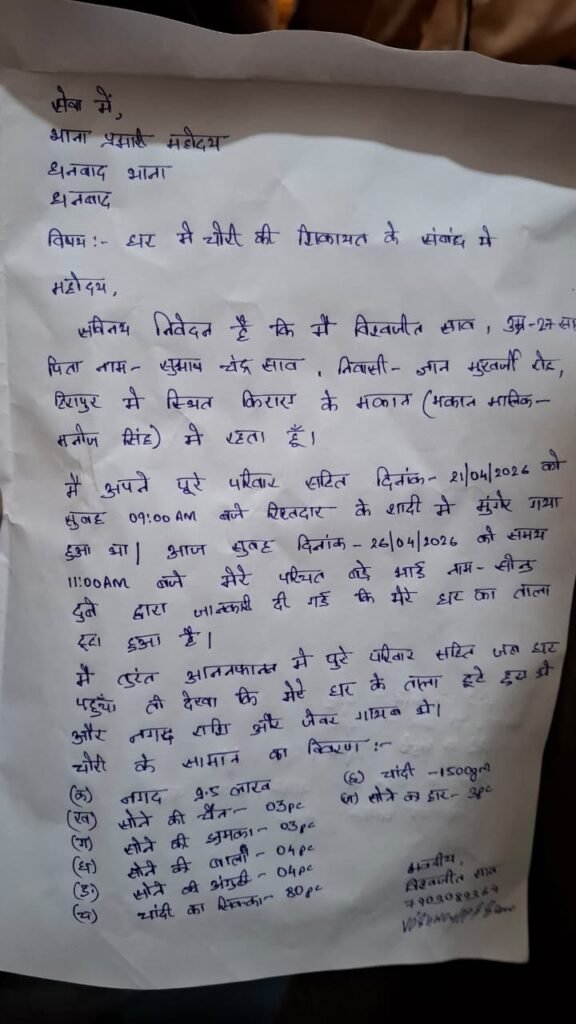 सेवा में,
थाना प्रभारी महोदय
धनबाद थाना
धनबाद
विषय:- घर मे चोरी की शिकायत के संबंध मे
महोदय,
सविनय निवेदन है कि मै विश्वजीत साव, उम्र-27 सा
पिता नाम- सुभाष चंद्र साव, निवासी- ज्ञान मुखर्जी रोड,
हिरापुर मे स्थित किराए के मकान (मकान मालिक-
मनोज सिंह) मे रहता हूँ।
मै अपने पूरे परिवार सहित दिनांक- 21/04/2026 को
सुबह 09:00AM बजे रिश्तेदार के शादी मे मुंगेर गया
हुआ था। आज सुबह दिनांक- 26/04/2026 को समय
11:00AM बजे मेरे परिचत बड़े भाई नाम- सोनु
दुबे द्वारा जानकारी दी गई कि मेरे घर का ताला
टुटा हुआ है।
मै तुरंत आननफानन मे पुरे परिवार सहित जब घर
पहुँचा तो देखा कि मेरे घर के ताला टूटे हुए थे
और नगद राशि और जेवर गायब थे।
चोरी के सामान का विवरण:-
(क) नगद 2.5 लाख
(ख) सोने की चैन- 03pc
(ग) सोने की झुमका- 03pc
(घ) सोने की बाली- 04pc
(ङ) सोने की अंगुठी- 04pc
(च) चांदी का सिक्का- 80pc
(छ) चांदी -1500gm
(ज) सोने का हार- 3pc
भवदीय,
विश्वजीत साव
7903089364